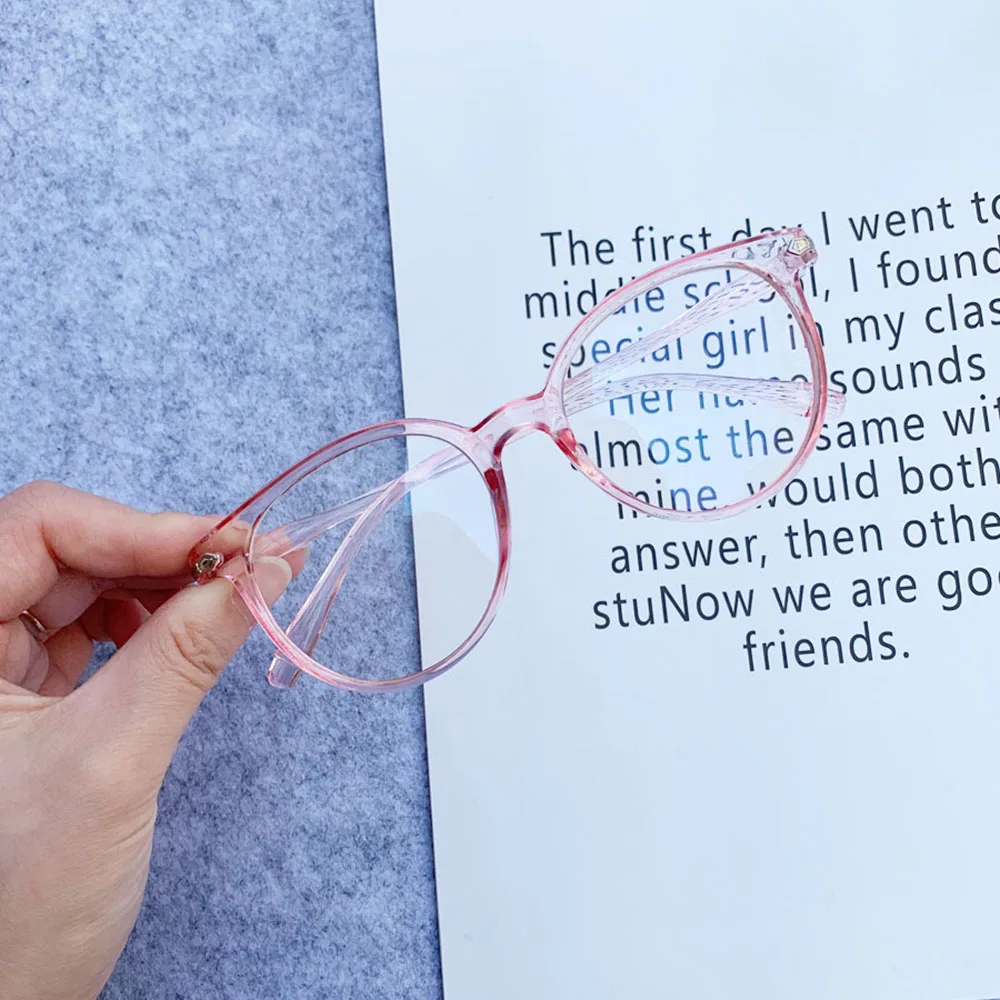 The first day I went to
middle school, I found
special girl in my clas
Her name sounds
almost the same wit
mine, would both
answer, then othe
stuNow we are goo
friends.